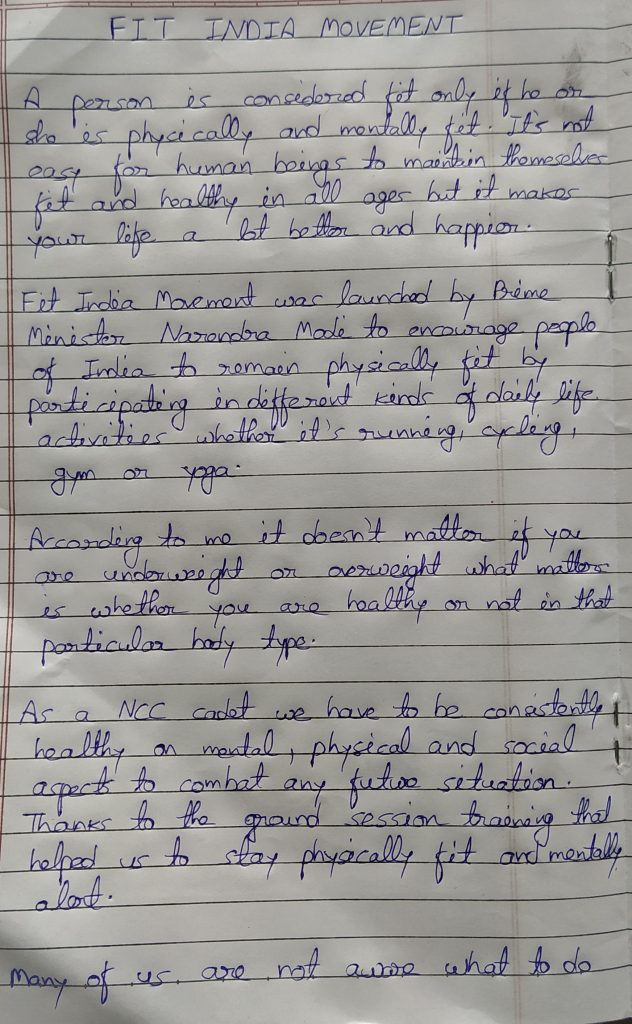 FIT INDIA MOVEMENT
A person is considered fit only if he or
she is physically and mentally fit. It's not
easy for human beings to maintain themeselves
fit and healthy in all ages but it makes
your life a lot better and happier.
Fit India Movement was launched by Prime
Minister Narendra Modi to encourage people
of India to remain physically fit by
participating in different kinds of daily life
activities whether it's running, cycling,
gym or yoga.
According to me it doesn't matter if you
are underweight or overweight what matters
is whether you are healthy or not in that
particular body type.
As a NCC cadet we have to be consistently
healthy on mental, physical and social
aspects to combat any future situation.
Thanks to the ground session training that
helped us to stay physically fit and mentally
alert.
Many of us are not aware what to do